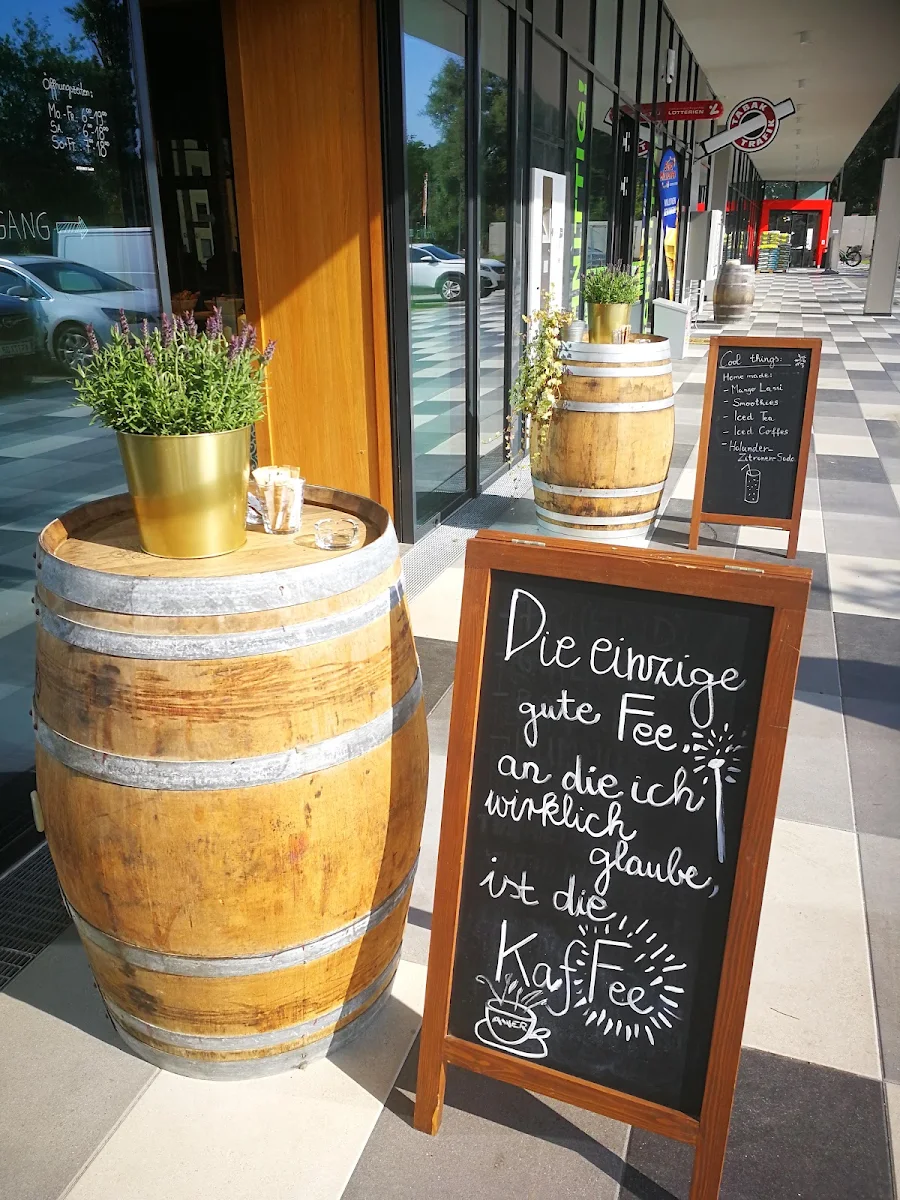 Öffnungszeiten:
Mo-Fr
Sa
So+F
GANG
LOTTERIEN
TABAK
TRAFIK
Cool things:
Home made:
- Mango Lassi
- Smoothies
- Iced Tea
- Iced Coffee
- Holunder-
Zitronen-Soda
Die einzige
gute Fee,
an die ich
wirklich
glaube,
ist die
KafFee
ANKER